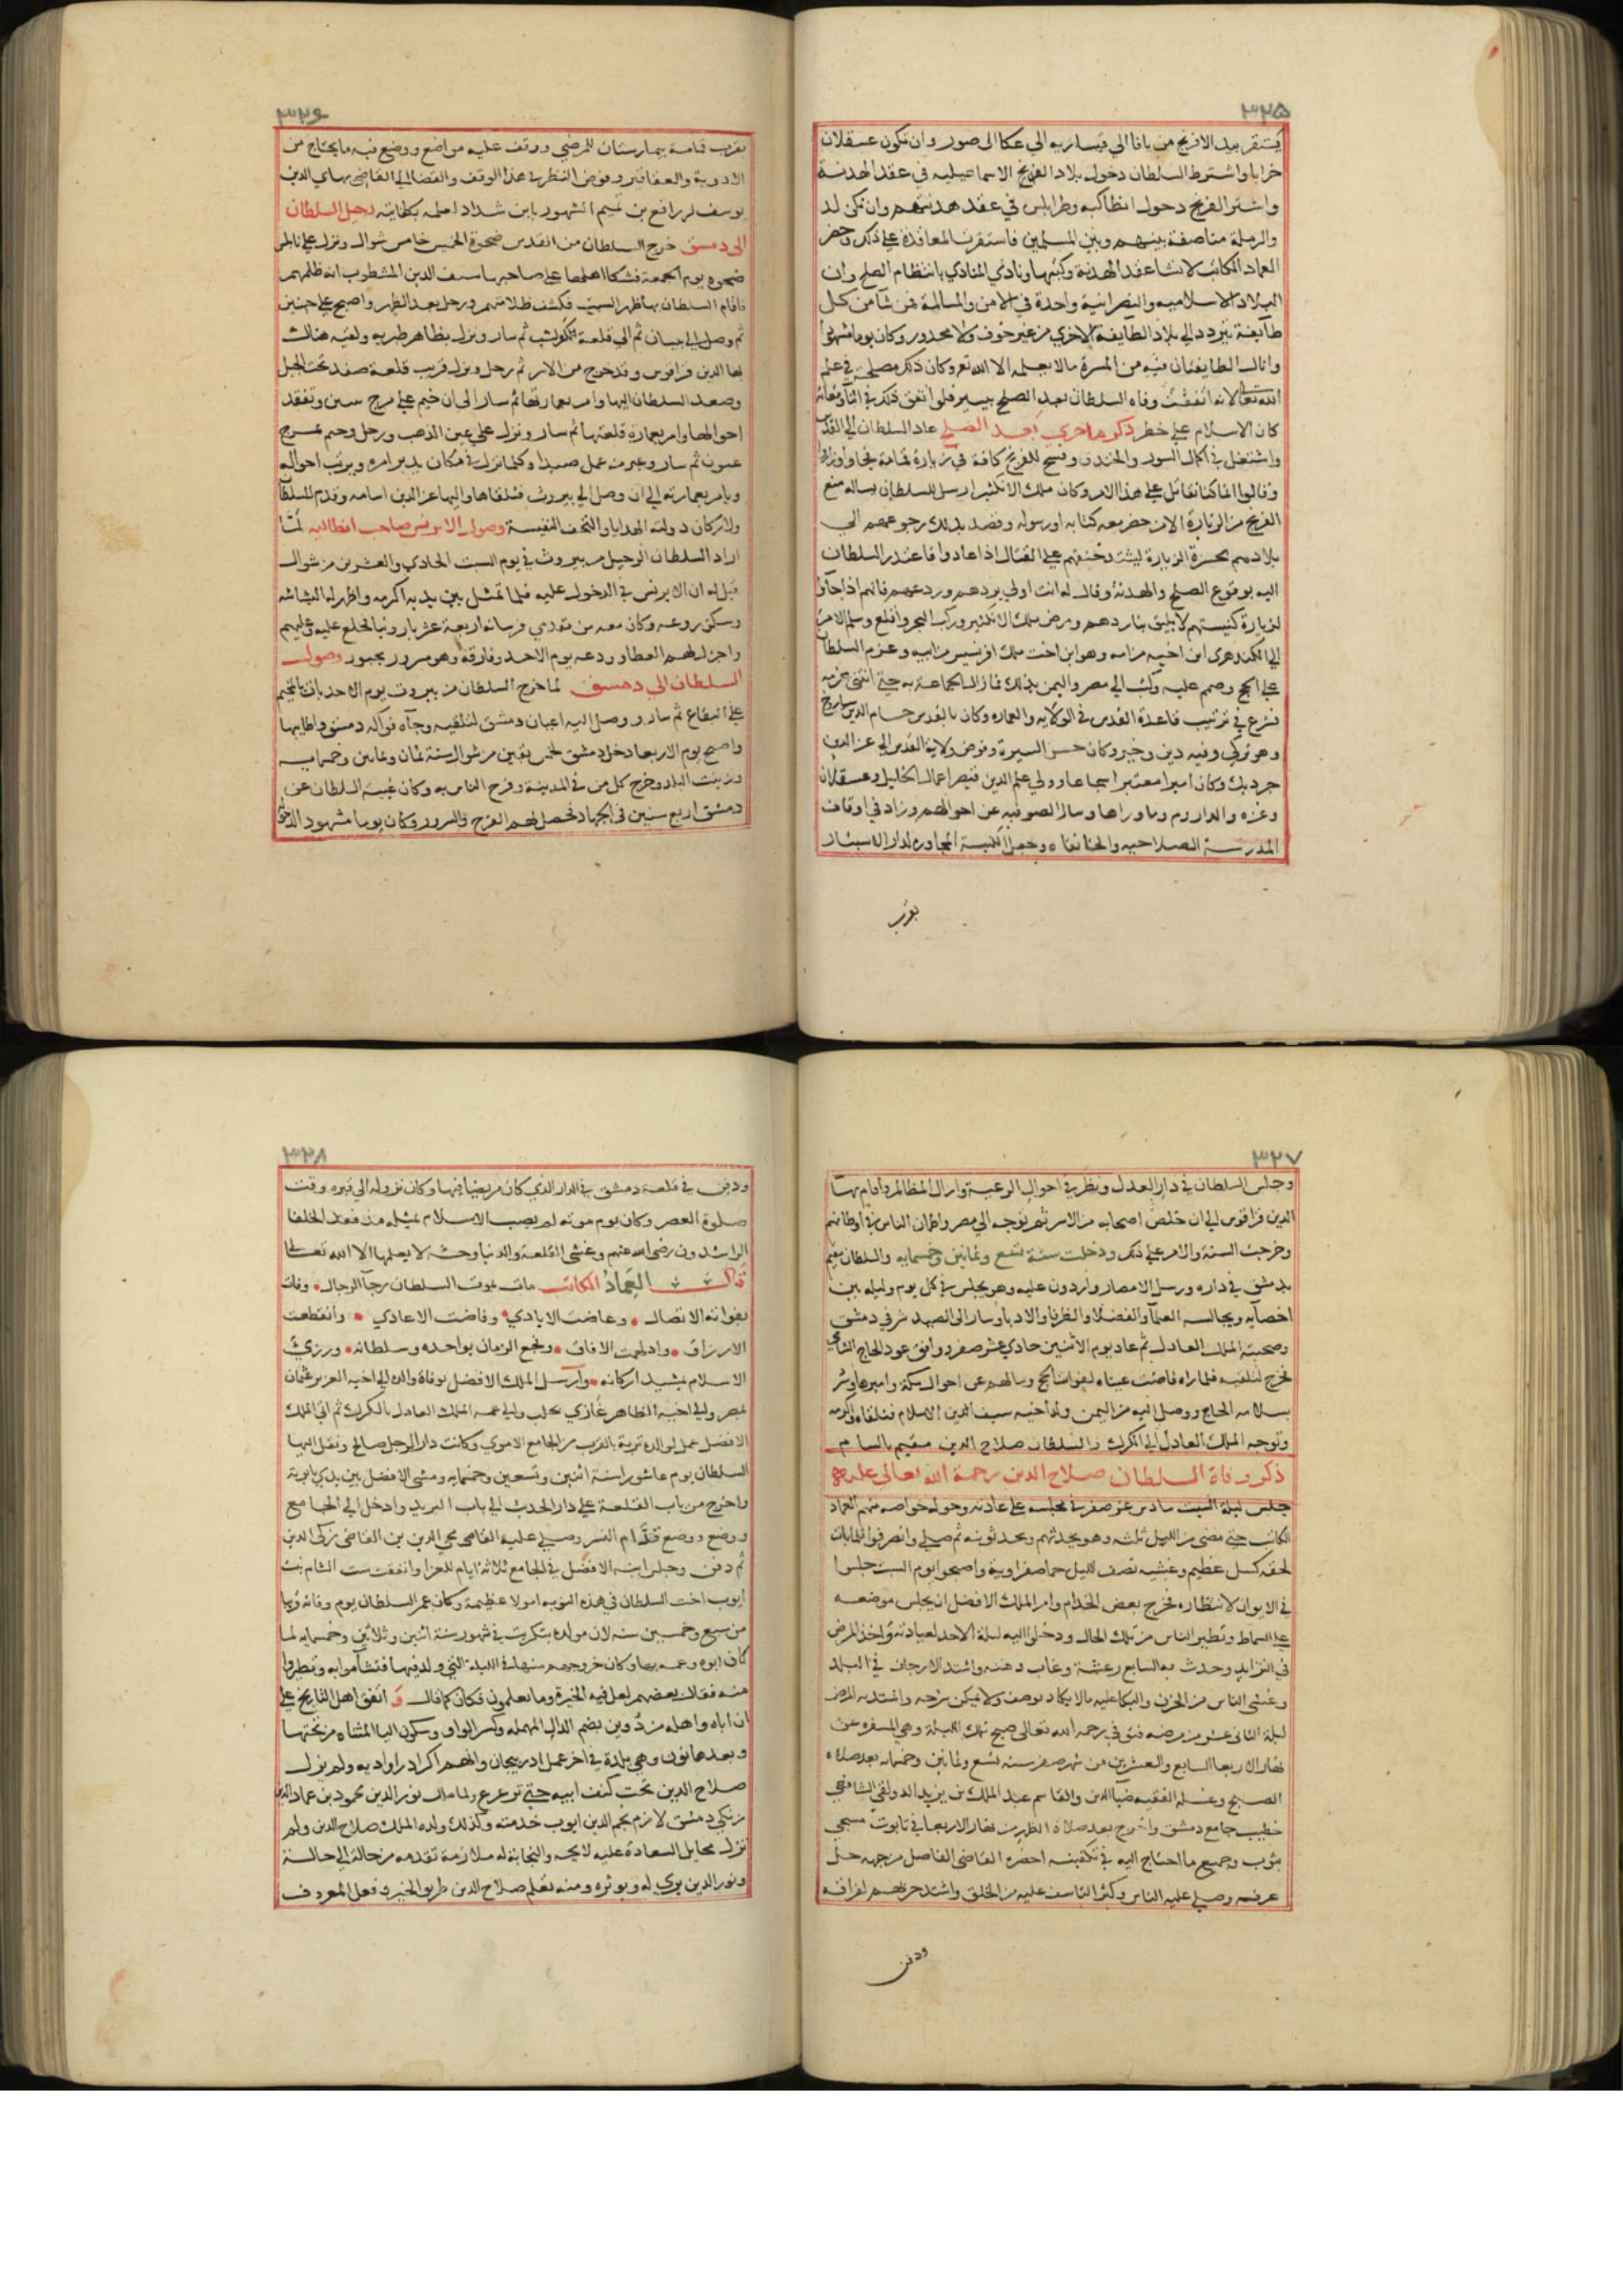 ٣٢٥
يستقر بيد الافرنج من يافا الي قيساريه الي عكا الى صور وان تكون عسقلان
خرابا واشترط السلطان دخول بلاد الاسماعيليه في عقد الهدنة
واشتر الفرنج دخول انطاكيه وطرابلس في عقد هدنتهم وان تكن لد
والرملة مناصفة بينهم وبين المسلمين فاستقرت المعاقدة علي ذلك وحضر
العماد الكاتب لانشا عقد الهدنة وكتبها ونادي المنادي بانتظام الصلح وان
البلاد الاسلاميه والنصرانية واحدة في الامن والمسالمة فمن شا من كل
طايفة يتردد الي بلاد الطايفة الاخري من غير خوف ولا محدور وكان يوما مشهودا
ونال الطايفتان فيه من المسرة مالا يعلمه الا الله تع وكان ذلك مصلحة في علم
الله تعالي لانه اتفقت وفاه السلطان بعد الصلح بيسير فلو اتفق ذلك في اثنا
كان الاسلام علي خطر ذكر ما جري بعد الصلح عاد السلطان الي القدس
واشتغل في اكمال السور والخندق وفسح للفرنج كافة في زيارة قمامة فجاوا وزاروا
وقالوا انما كنا نقاتل علي هذا الامر وكان ملك الانكثير ارسل للسلطان يساله منع
الفرنج من الزيارة الا من حضر معه كتابه او رسوله وقصد بذلك رجوعهم الي
بلادهم بحسرة الزيارة ليشتد حنقهم علي القتال اذا عادوا فاعتذر السلطان
اليه بوقوع الصلح والهدنة وقال له انت اولي بردهم وردعهم فانهم اذا جاوا
لزيارة كنيستهم لا يليق بنا ردهم ومرض ملك الانكثير وركب البحر واقلع وسلم الامر
الي الكندهري ابن اخيه من امه وهو ابن اخت ملك افرنسيس من ابيه وعزم السلطان
علي الحج وصمم عليه وكتب الي مصر واليمن بذلك فما زال الجماعة به حتي انثني عزمه
فشرع في ترتيب قاعدة القدس في الولايه والعماره وكان بالقدس حسام الدين
وهو تركي وفيه دين وخير وكان حسن السيرة وفوض ولاية القدس الي عز الدين
جرديك وكان اميرا معتبرا شجاعا وولي علم الدين قيصر اعمال الخليل وعسقلان
وغزه والداروم وما وراها وسال الصوفيه عن احوالهم وزاد في اوقاف
المدرسة الصلاحيه والخانقاه وجعل الكنيسة المجاوره لدار الاسبتار
بقرب
٣٢٦
بقرب قمامة بيمارستان للمرضي ووقف عليه مواضع ووضع فيه ما يحتاج من
الادوية والعقاقير وفوض النظر في هذا الوقف والقضا الي القاضي بهاي الدين
يوسف بن رافع بن تميم الشهور بابن شداد لعلمه بكفايته رحيل السلطان
الي دمشق خرج السلطان من القدس ضحوة الخميس خامس شوال ونزل علي نابلس
ضحوه يوم الجمعة فشكا اهلها علي صاحبها سيف الدين المشطوب انه ظلمهم
فاقام السلطان بها ظهر السبت فكشف ظلامتهم ورحل بعد الظهر واصبح علي جنين
ثم وصل الي بيسان ثم الي قلعة كوكب ثم سار ونزل بظاهر طبريه ولقيه هناك
بها الدين قراقوس وقد خرج من الاسر ثم رحل ونزل قريب قلعة صفد تحت الجبل
وصعد السلطان اليها وامر بعمارتها ثم سار الي ان خيم علي مرج تبنين وتفقد
احوالها وامر بعمارة قلعتها ثم سار ونزل علي عين الذهب ورحل وخيم بمرج
عيون ثم سار وعبر من عمل صيدا وكلما نزل في مكان يدبر امره ويرتب احواله
ويامر بعمارته الي ان وصل الي بيروت فتلقاها واليها عز الدين اسامه وقدم للسلطان
ولاركان دولته الهدايا والتحف النفيسة وصول الابرنس صاحب انطاكيه لما
اراد السلطان الرحيل من بيروت في يوم السبت الحادي والعشرين من شوال
قيل له ان الابرنس في الدخول عليه فلما تمثل بين يديه اكرمه واظهر له البشاشه
وسكن روعه وكان معه من مقدمي فرسانه اربعة عشر بارونيا فخلع عليه وعليهم
واجزل لهم العطا وودعه يوم الاحد وفارقه وهو مسرور محبور وصول
السلطان الي دمسق لما خرج السلطان من بيروت يوم الاحد بات بالمخيم
علي البقاع ثم سار ووصل اليه اعيان دمشق لتلقيه وجآه فواكه دمشق واطايبها
واصبح يوم الاربعا دخل دمشق لخمس بقين من شوال سنة ثمان وثمانين وخمسمايه
وزينت البلد وخرج كل من في المدينة وفرح الناس به وكان غيبة السلطان عن
دمشق اربع سنين في الجهاد فحصل لهم الفرح والسرور وكان يوما مشهود الدخوله
٣٢٧
وجلس السلطان في دار العدل ونظر في احوال الرعية وازال المظالم واقام بها
الدين قراقوس الي ان خلص اصحابه من الاسر ثم توجه الي مصر واطمان الناس في اوطانهم
وخرجت السنة والامر علي ذلك ودخلت سنة تسع وثمانين وخمسمايه والسلطان مقيم
بدمشق في داره ورسل الامصار واردون عليه وهو يجلس في كل يوم وليله بين
اخصآيه ويجالسه العلمآ والفضلا والظرفا والادبا وسار الى الصيد شرقي دمشق
وصحبته الملك العادل ثم عاد يوم الاثنين حادي عشر صفر ووافق عود الحاج الشامي
فخرج لتلقيه فلما راه فاضت عيناه لفوات الحج وسالهم عن احوال مكة واميرها وسر
بسلامه الحاج ووصل اليه من اليمن ولد اخيه سيف الدين الاسلام فتلقاه واكرمه
وتوجه الملك العادل الي الكرك والسلطان صلاح الدين مقيم بالشام
ذكر وفاة السلطان صلاح الدين رحمة الله تعالى عليه
جلس ليلة السبت سادس عشر صفر في مجلسه علي عادته وحوله خواصه منهم العماد
الكاتب حتي مضي من الليل ثلثه وهو يحدثهم ويحدثونه ثم صلي وانصرفوا
لحقه كسل عظيم وغشيه نصف الليل حما صفراويه واصبحوا يوم السبت جلسوا
في الايوان لانتظاره فخرج بعض الخدام وامر الملك الافضل ان يجلس موضعه
علي السماط وتطير الناس من تلك الحال ودخل اليه ليلة الاحد لعيادته واخذ المرض
في التزايد وحدث به السابع رعشة وغاب ذهنه واشتد الارجاف في البلد
وغشي الناس من الحزن والبكا عليه مالا يكاد يوصف ولا يمكن شرحه واشتد به المرض
ليلة الثاني عشر من مرضه فتوفي رحمه الله تعالى صبيح تلك الليلة وهي المسفره عن
نهار الاربعا السابع والعشرين من شهر صفر سنه تسع وثمانين وخمسمايه بعد صلاه
الصبح وغسله الفقيه ضيا الدين والقاسم عبد الملك بن يزيد الدولقي الشافعي
خطيب جامع دمشق واخرج بعد صلاة الظهر من نهار الاربعا في تابوت مسجي
بثوب وجميع ما احتاج اليه في تكفينه احضره القاضي الفاضل من جهه حل
عرفه وصلي عليه الناس وكثر التاسف عليه من الخلق واشتد حزنهم لفراقه
ودفن
٣٢٨
ودفن في قلعة دمشق في الدار الذي كان مريضا فيها وكان نزوله الي قبره وقت
صلوة العصر وكان يوم موته لم يصب الاسلام بمثله منذ فقد الخلفا
الراشدون رضي الله عنهم وغشي القلعة والدنيا وحشة لا يعلمها الا الله تعالي
قال العماد الكاتب مات بموت السلطان رجآ الرجال وفات
بفواته الافضال وغاضت الايادي وفاضت الاعادي وانقطعت
الارزاق وادلهمت الافاق وفجع الزمان بواحده وسلطانه ورزي
الاسلام بمشيد اركانه وارسل الملك الافضل بوفاة والده الي اخيه العزيز عثمان
بمصر والي اخيه الظاهر غازي بحلب والي عمه الملك العادل بالكرك ثم ان الملك
الافضل عمل لوالده تربة بالقرب من الجامع الاموي وكانت دار الرجل صالح ونقل اليها
السلطان يوم عاشورا سنة اثنين وتسعين وخمسمايه ومشي الافضل بين يدي تابوته
واخرج من باب القلعة علي دار الحديث الي باب البريد وادخل الي الجامع
ووضع قدام النسر وصلي عليه القاضي محي الدين بن القاضي زكي الدين
ثم دفن وجلس ابنه الافضل في الجامع ثلاثة ايام للعزا وانفقت ست الشام بنت
ايوب اخت السلطان في هذه النوبه اموالا عظيمة وكان عمر السلطان يوم وفاته قريبا
من سبع وخمسين سنه لان مولده بتكريت في شهور سنة اثنين وثلاثين وخمسمايه لما
كان ابوه وعمه بها وكان خروجهم منها في الليلة التي ولد فيها فتشآموا به وتطيروا
منه فقال بعضهم لعل فيه الخيرة وما تعلمون فكان كما قال و اتفق اهل التاريخ علي
ان اباه واهله من دوين بضم الدال المهمله وكسر الواو وسكون اليا المثناه من تحتها
وبعدها نون وهي بلدة في اخر عمل اذربيجان وانهم اكراد رواديه ولم يزل
صلاح الدين تحت كنف ابيه حتي ترعرع ولما ملك نور الدين محمود بن عماد الدين
زنكي دمشق لازم نجم الدين ايوب خدمته وكذلك ولده الملك صلاح الدين ولم
تزل مخايل السعادة عليه لايحه والنجابة له ملازمة تقدمه من حالة الي حالة
ونور الدين يري له ويوثره ومنه تعلم صلاح الدين طريق الخير وفعل المعروف